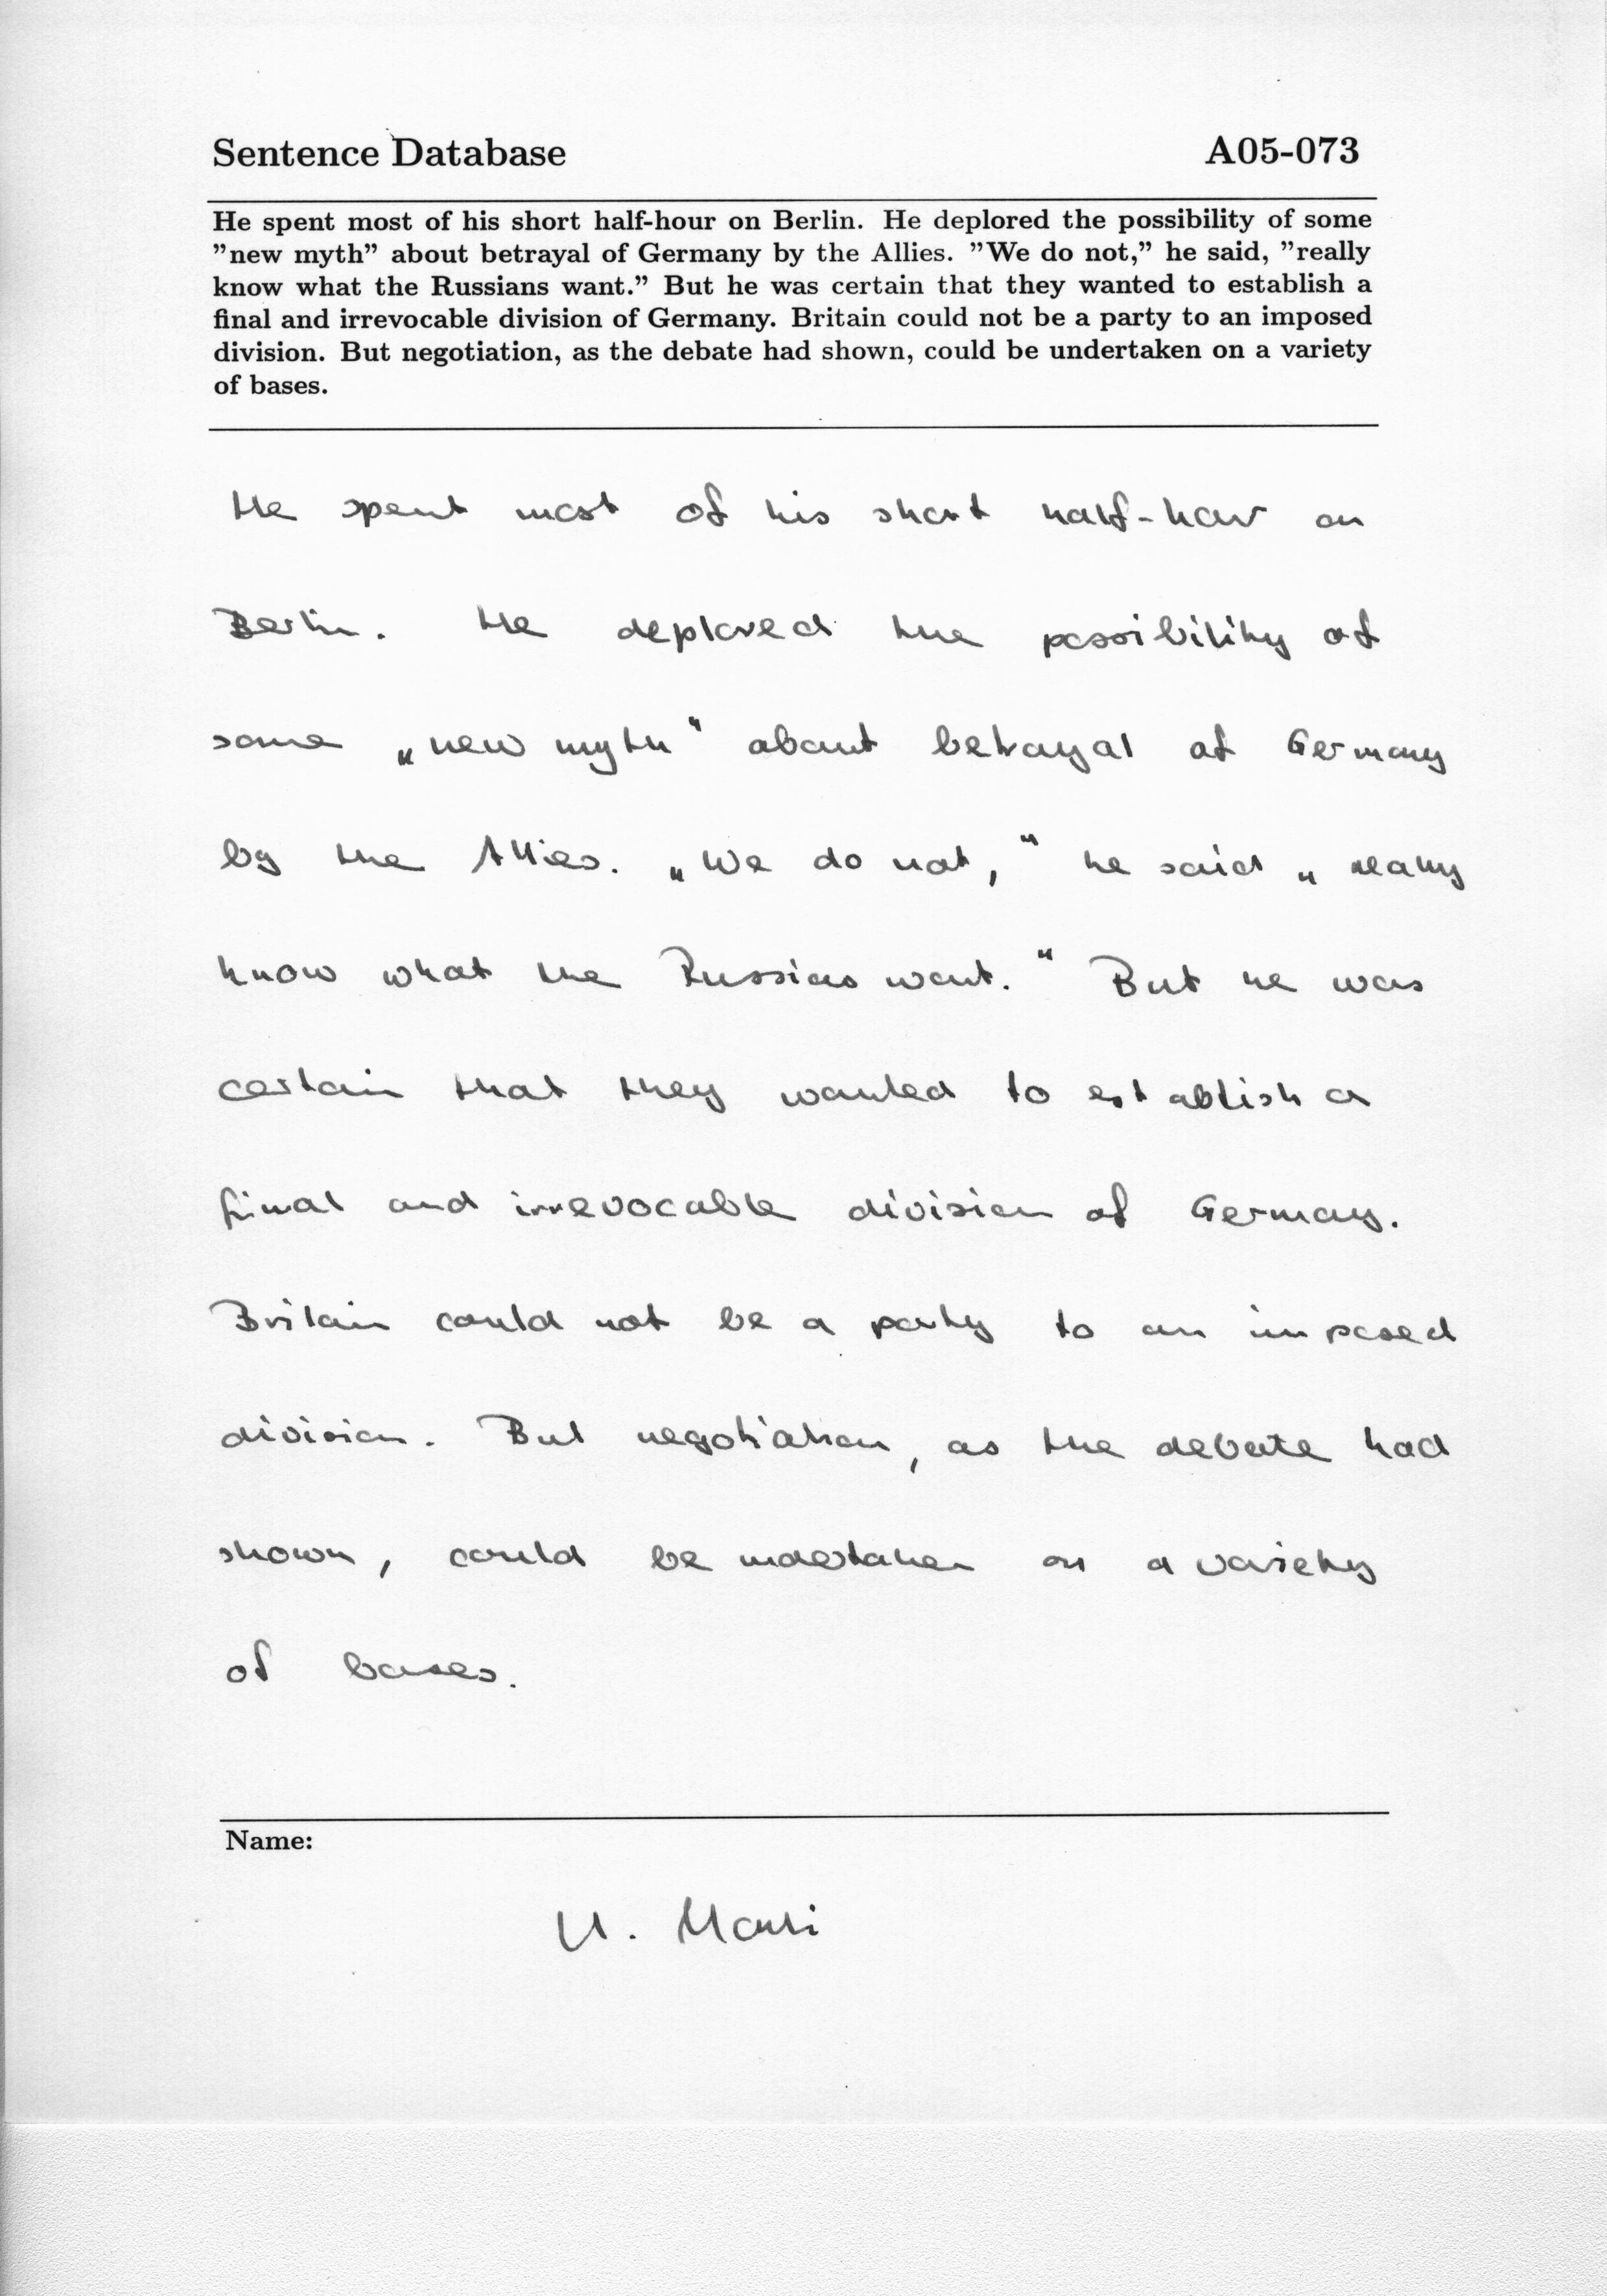 Sentence Database A05-073
He spent most of his short half-hour on Berlin. He deplored the possibility of some
”new myth” about betrayal of Germany by the Allies. ”We do not,” he said, ”really
know what the Russians want.” But he was certain that they wanted to establish a
final and irrevocable division of Germany. Britain could not be a party to an imposed
division. But negotiation, as the debate had shown, could be undertaken on a variety
of bases.
He spent most of his short half-hour on
Berlin. He deplored the possibility of
some „new myth“ about betrayal of Germany
by the Allies. „We do not,“ he said „really
know what the Russias want.“ But he was
certain that they wanted to establish a
final and irrevocable division of Germany.
Britain could not be a party to an imposed
division. But negotiation, as the debate had
shown, could be undertaken on a variety
of bases.
Name:
U.